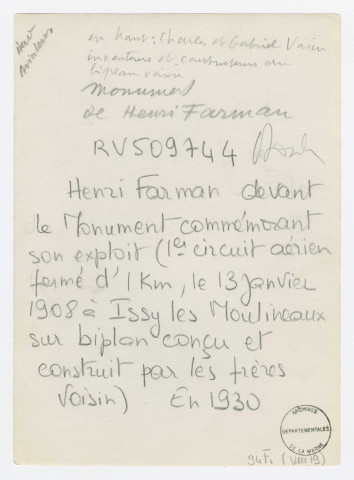 en haut : Charles et Gabriel Voisin
inventeurs et constructeurs du
biplan voisin
Monument
de Henri Farman
RV509744
Henri Farman devant
le Monument commémorant
son exploit (1er circuit aérien
fermé d'1 Km, le 13 janvier
1908 à Issy les Moulineaux
sur biplan conçu et
construit par les frères
Voisin). En 1930
ARCHIVES
DÉPARTEMENTALES
DE LA MARNE
94Fi (VIII 19)